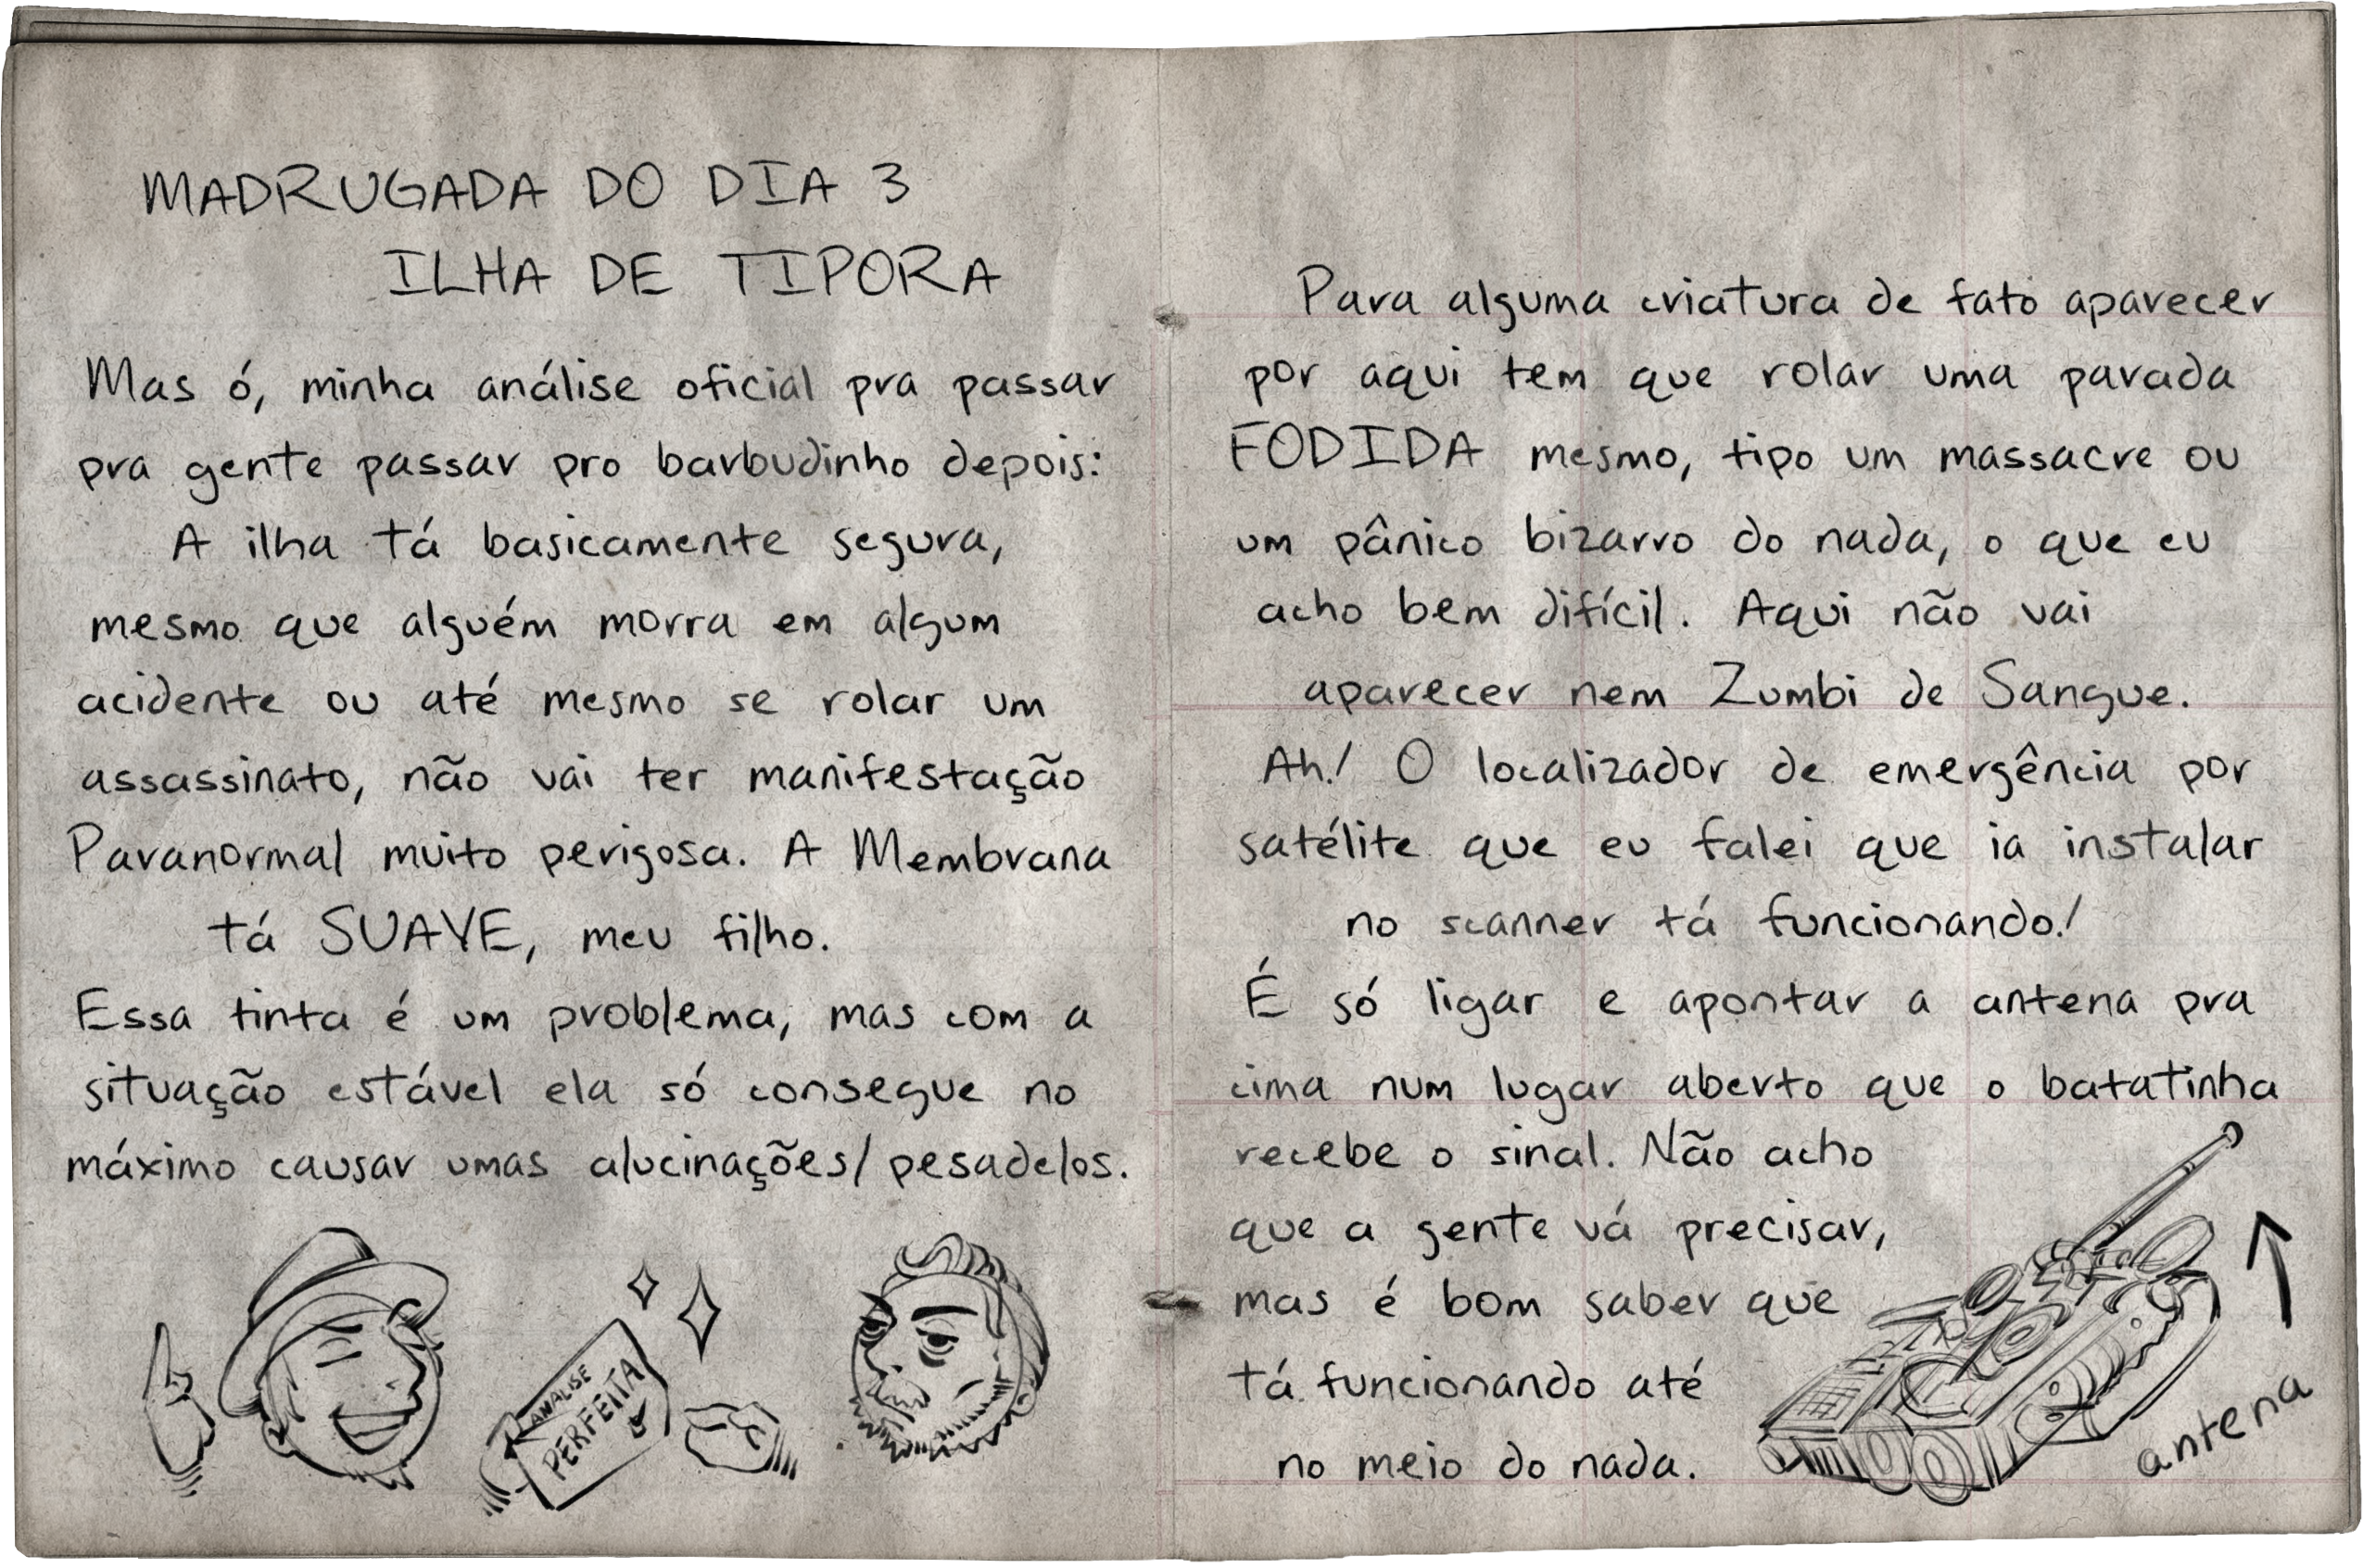 MADRUGADA DO DIA 3
ILHA DE TIPORA
Mas ó, minha análise oficial pra passar
pra gente passar pro barbudinho depois:
A ilha tá basicamente segura,
mesmo que alguém morra em algum
acidente ou até mesmo se rolar um
assassinato, não vai ter manifestação
Paranormal muito perigosa. A Membrana
tá SUAVE, meu filho.
Essa tinta é um problema, mas com a
situação estável ela só consegue no
máximo causar umas alucinações/pesadelos.
ANALISE
PERFEITA
Para alguma criatura de fato aparecer
por aqui tem que rolar uma parada
FODIDA mesmo, tipo um massacre ou
um pânico bizarro do nada, o que eu
acho bem difícil. Aqui não vai
aparecer nem Zumbi de Sangue.
Ah! O localizador de emergência por
satélite que eu falei que ia instalar
no scanner tá funcionando!
É só ligar e apontar a antena pra
cima num lugar aberto que o batatinha
recebe o sinal. Não acho
que a gente vá precisar,
mas é bom saber que
tá funcionando até
no meio do nada.
antena